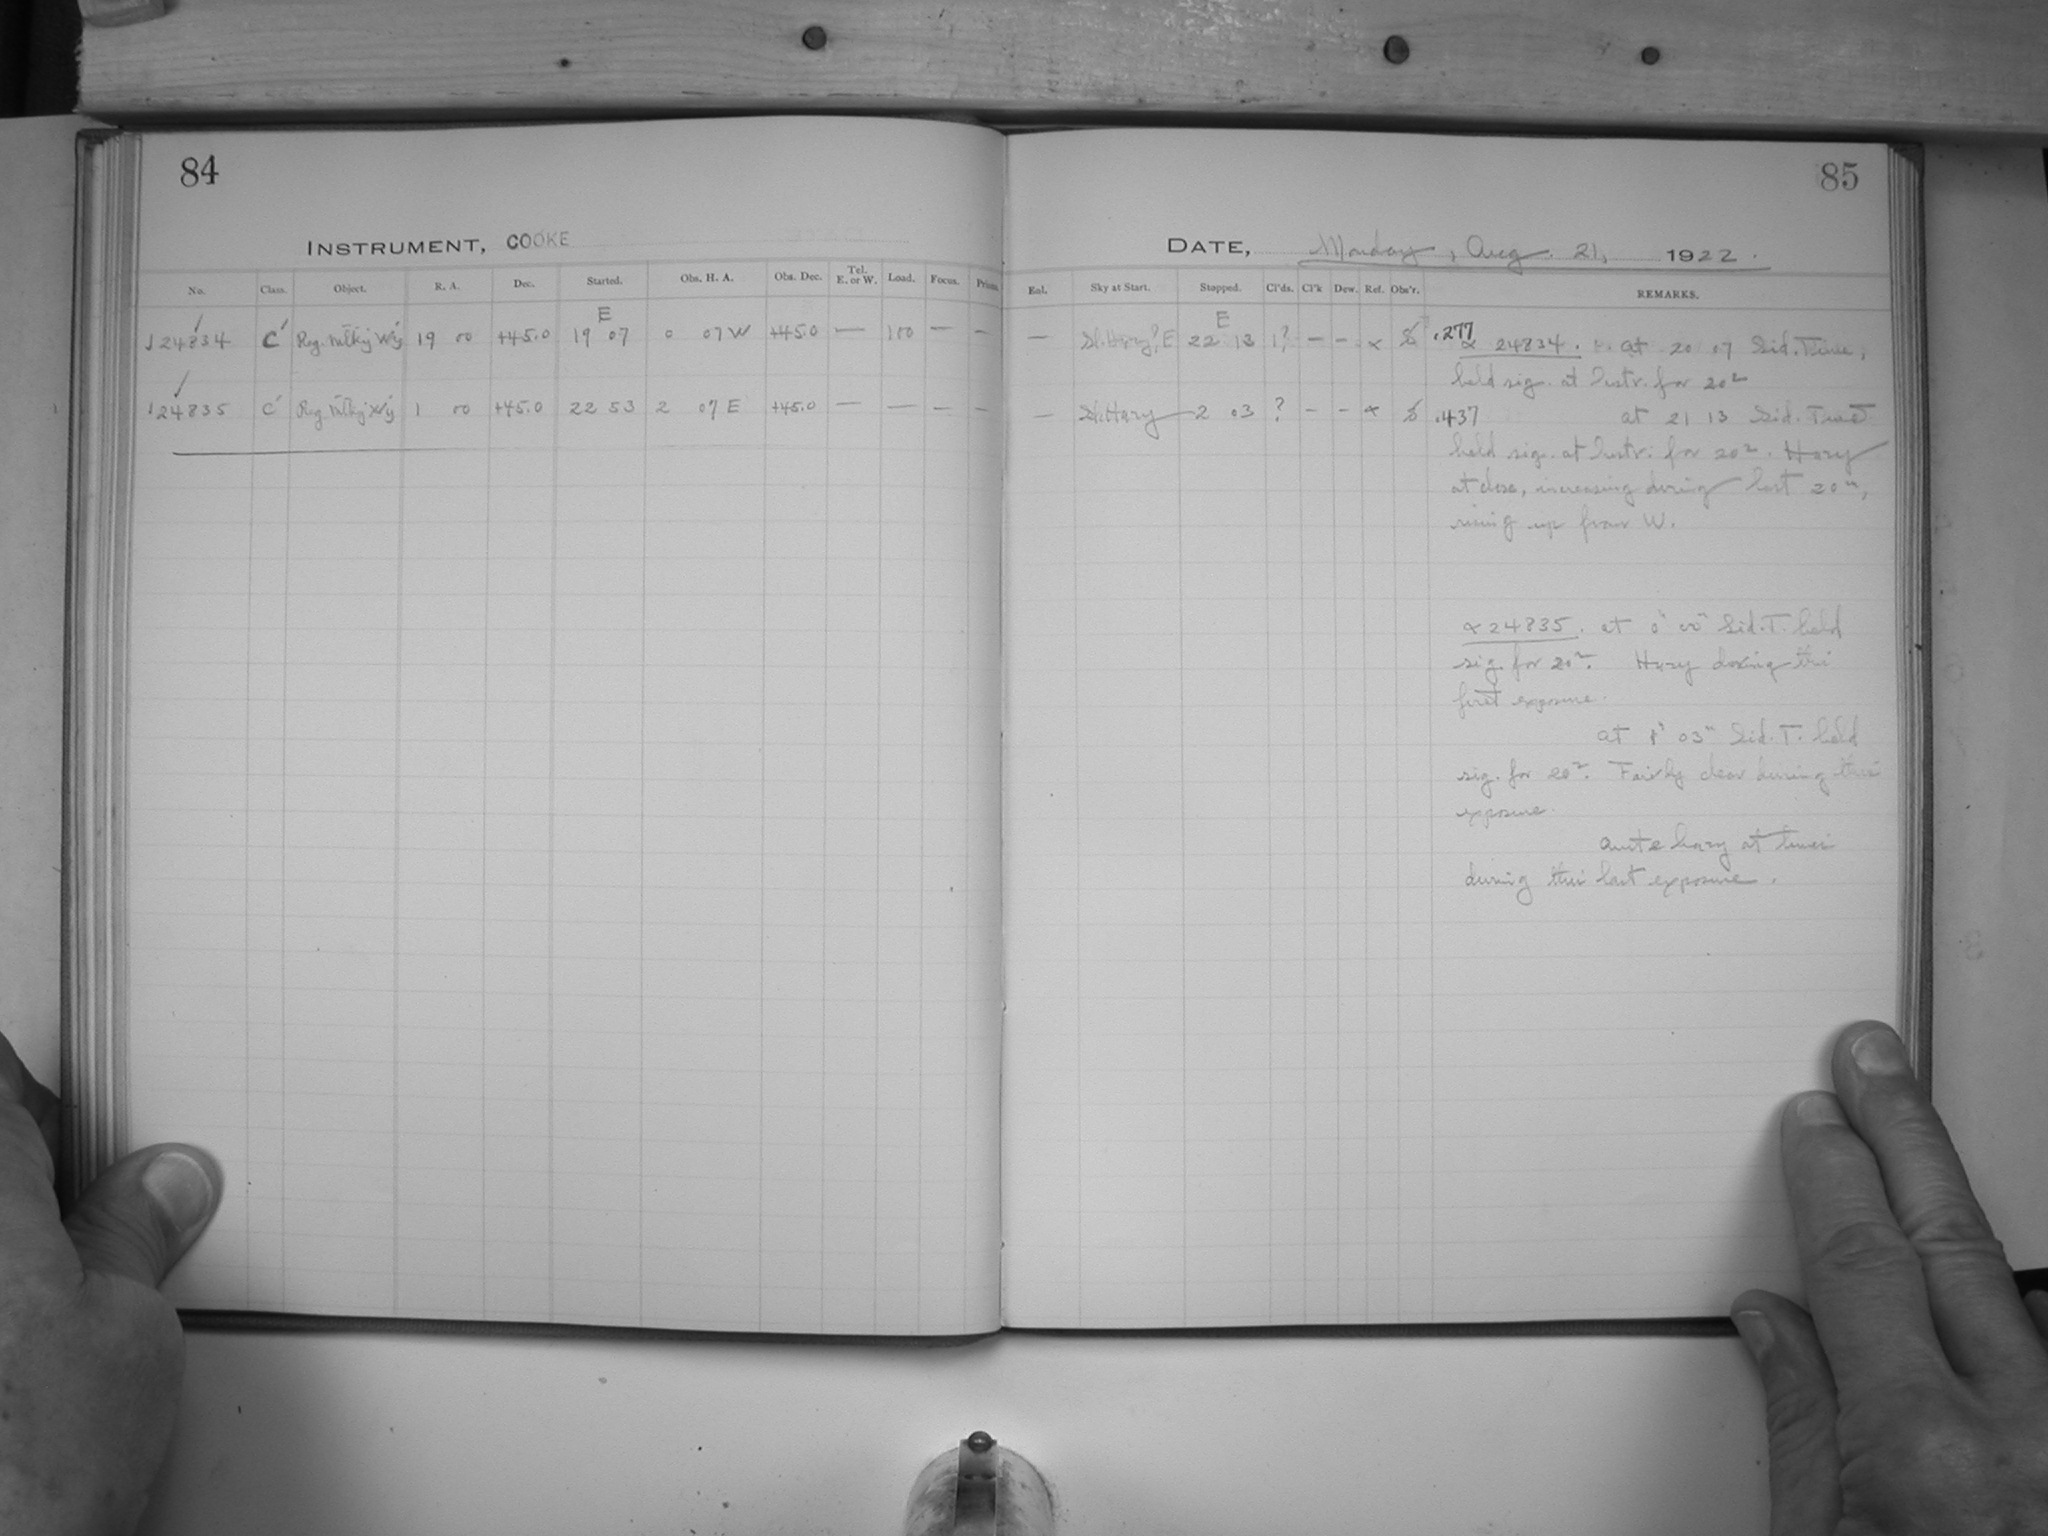 84
INSTRUMENT, COOKE
No. Class. Object. R. A. Dec. Started. Obs. H. A. Obs. Dec. Tel. E. or W. Load. Focus. Prism
E
24834 C Reg. Milky Wy 19 00 +45.0 19 07 0 07 W +45.0 — 100 — —
24835 C Reg. Milky Wy 1 00 +45.0 22 53 2 07 E +45.0 — — — —
85
DATE, Monday, Aug. 21, 1922.
Eal. Sky at Start. Stopped. Cl'ds. Cl'k Dew. Ref. Obs'r. REMARKS.
E
— Sl. Hazy?, E 22 13 1? — — α .277
α 24834. at 20 07 Sid. Time,
held sig. at Instr. for 20
— Sl. Hazy 2 03 ? — — α .437
at 21 13 Sid. Time
held sig. at Instr. for 20. Hazy
at close, increasing during last 20m,
rising up from W.
α 24835. at 0 00 Sid. T. held
sig. for 20. Hazy during this
first exposure.
at 1 03 Sid. T. held
sig. for 20. Fairly clear during this
exposure.
Quite hazy at times
during this last exposure.